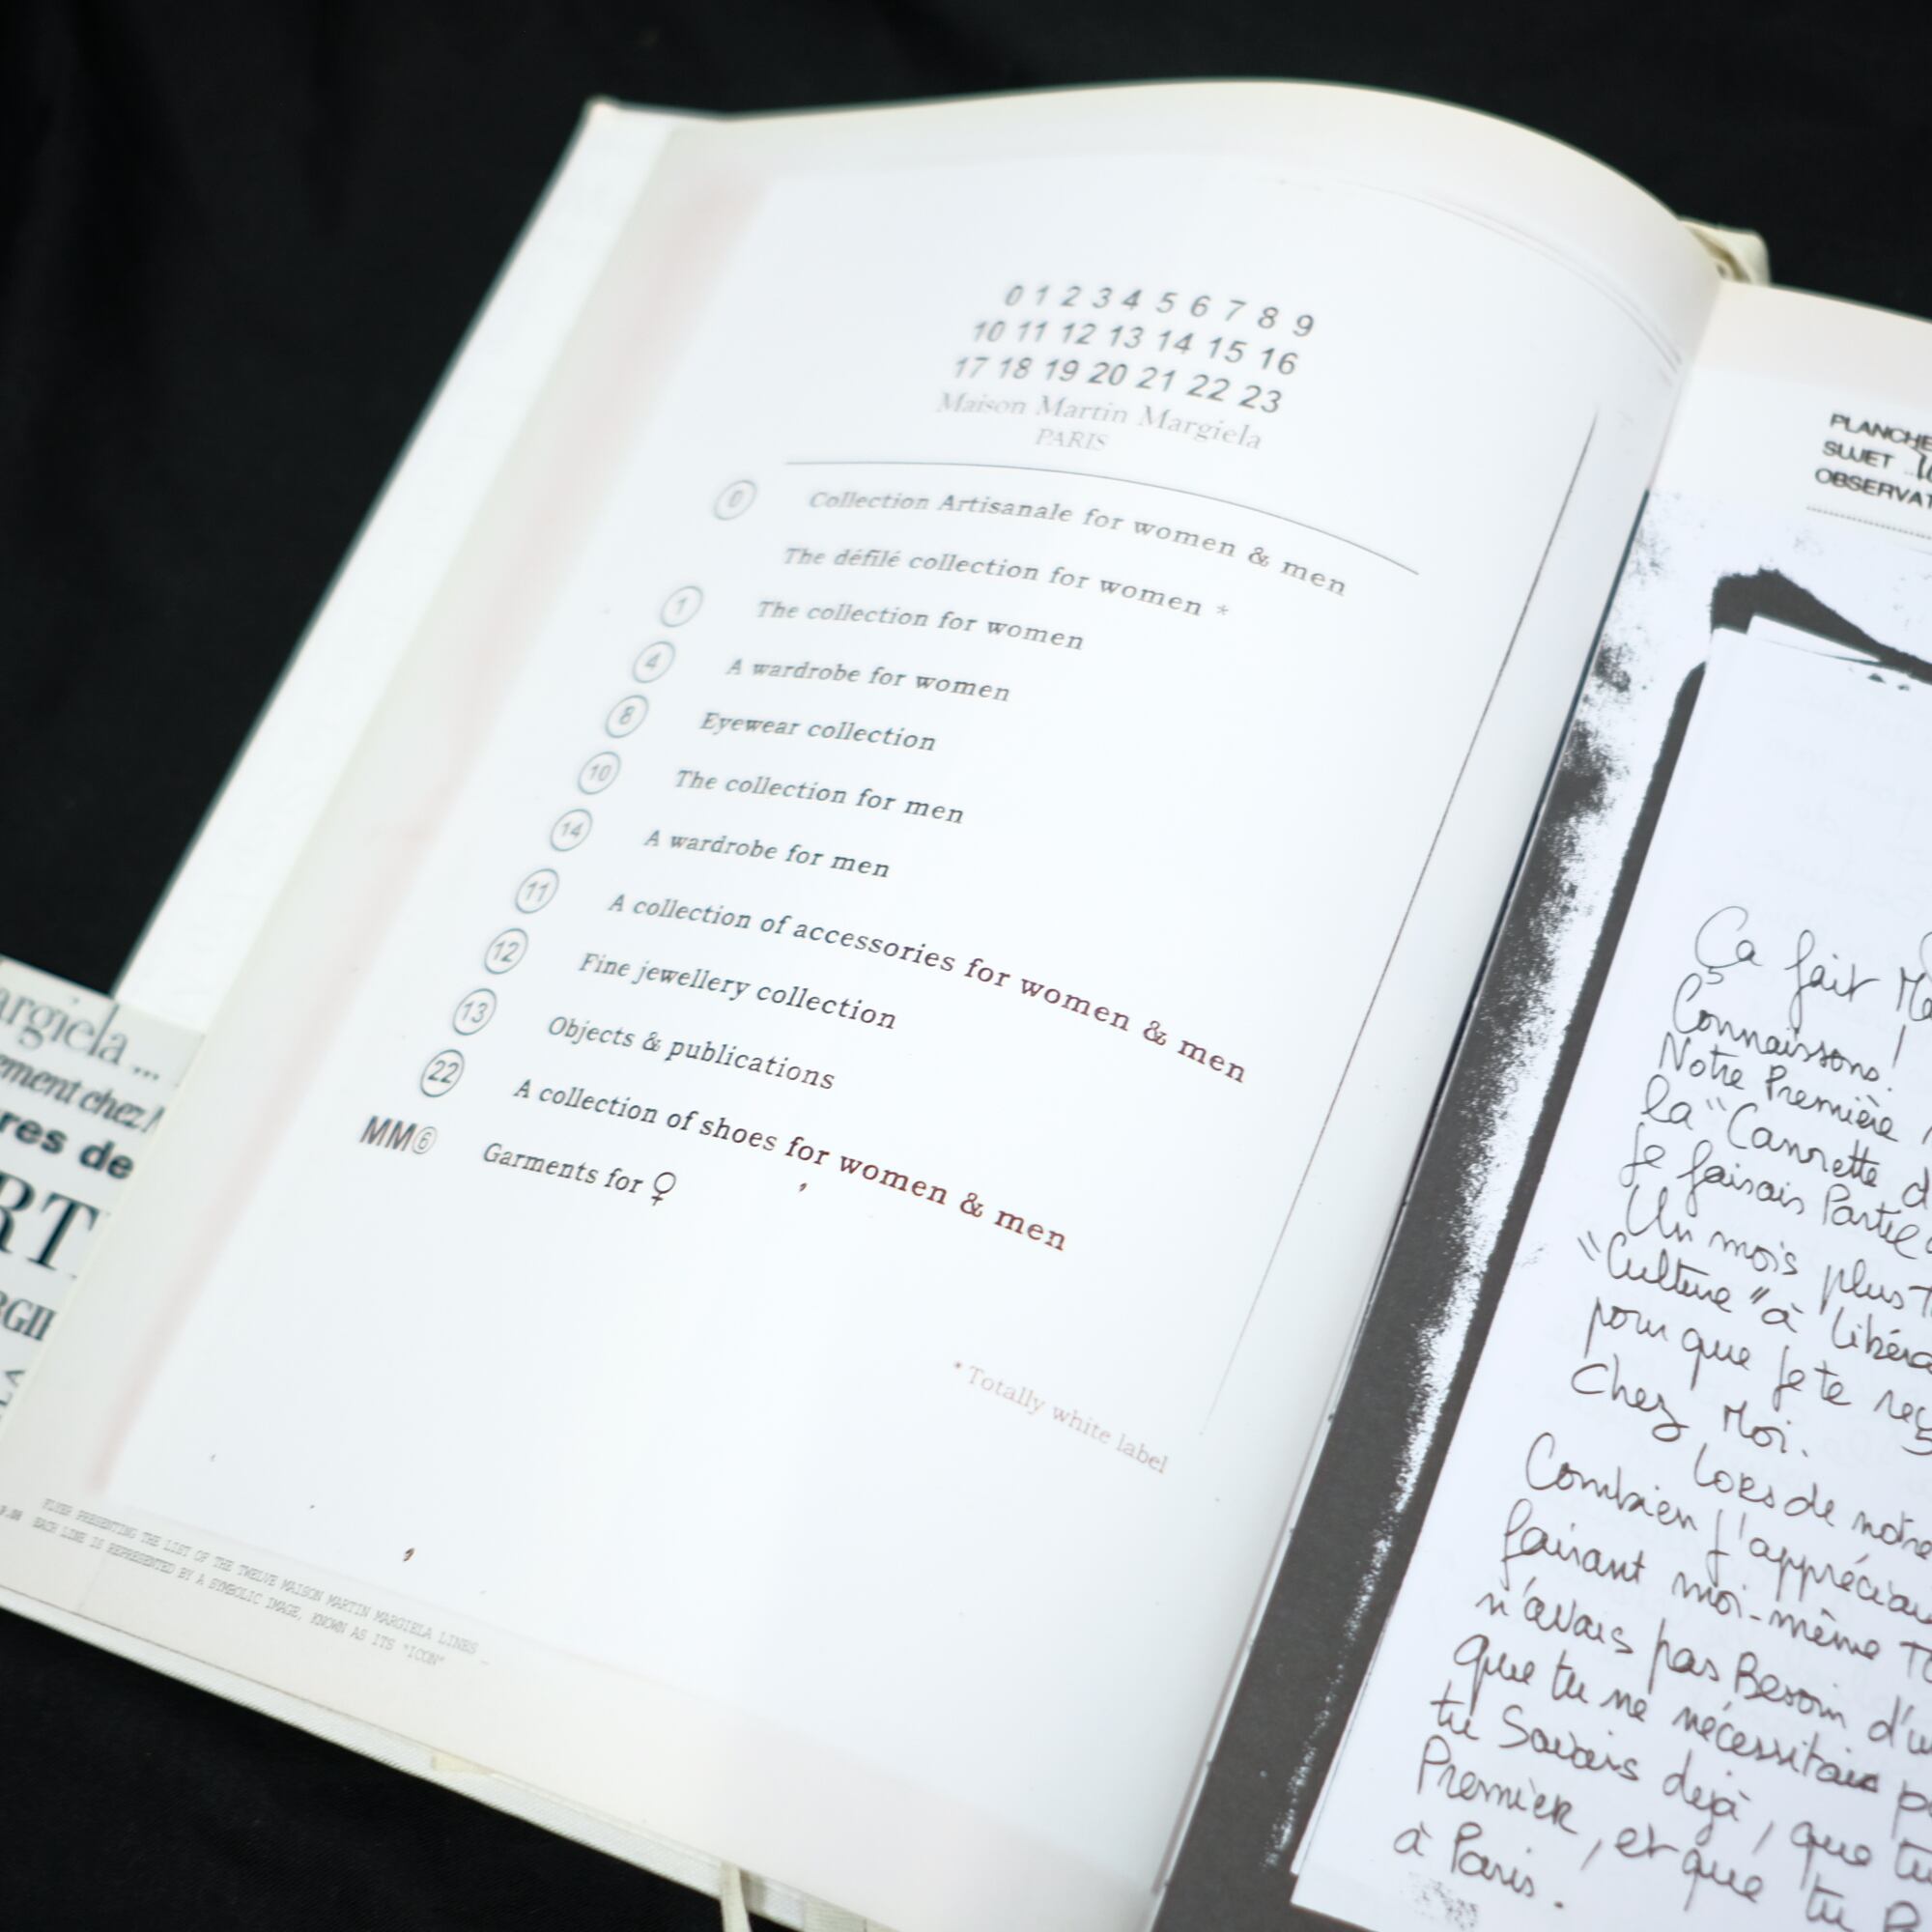 0 1 2 3 4 5 6 7 8 9
10 11 12 13 14 15 16
17 18 19 20 21 22 23
Maison Martin Margiela
PARIS
0 Collection Artisanale for women & men
The défilé collection for women *
1 The collection for women
4 A wardrobe for women
8 Eyewear collection
10 The collection for men
14 A wardrobe for men
11 A collection of accessories for women & men
12 Fine jewellery collection
13 Objects & publications
22 A collection of shoes for women & men
MM6 Garments for ♀
* Totally white label
FLYER PRESENTING THE LIST OF THE TWELVE MAISON MARTIN MARGIELA LINES _
EACH LINE IS REPRESENTED BY A SYMBOLIC IMAGE, KNOWN AS ITS "ICON"
argiela ...
ement chez
res de
RT
RGI
PLANCHE
SUJET
OBSERVAT
Ça fait
Connaissons !
Notre Première
la "Canrette d
Je faisais Partie
Un mois plus t
"Culture" à libéra
pour que je te reç
Chez Moi.
Lors de notre
Combien j'appréciai
faisant moi-même to
n'avais pas Besoin d'u
que tu ne nécessitais p
tu Savais dejà, que tu
Premier, et que tu
à Paris.